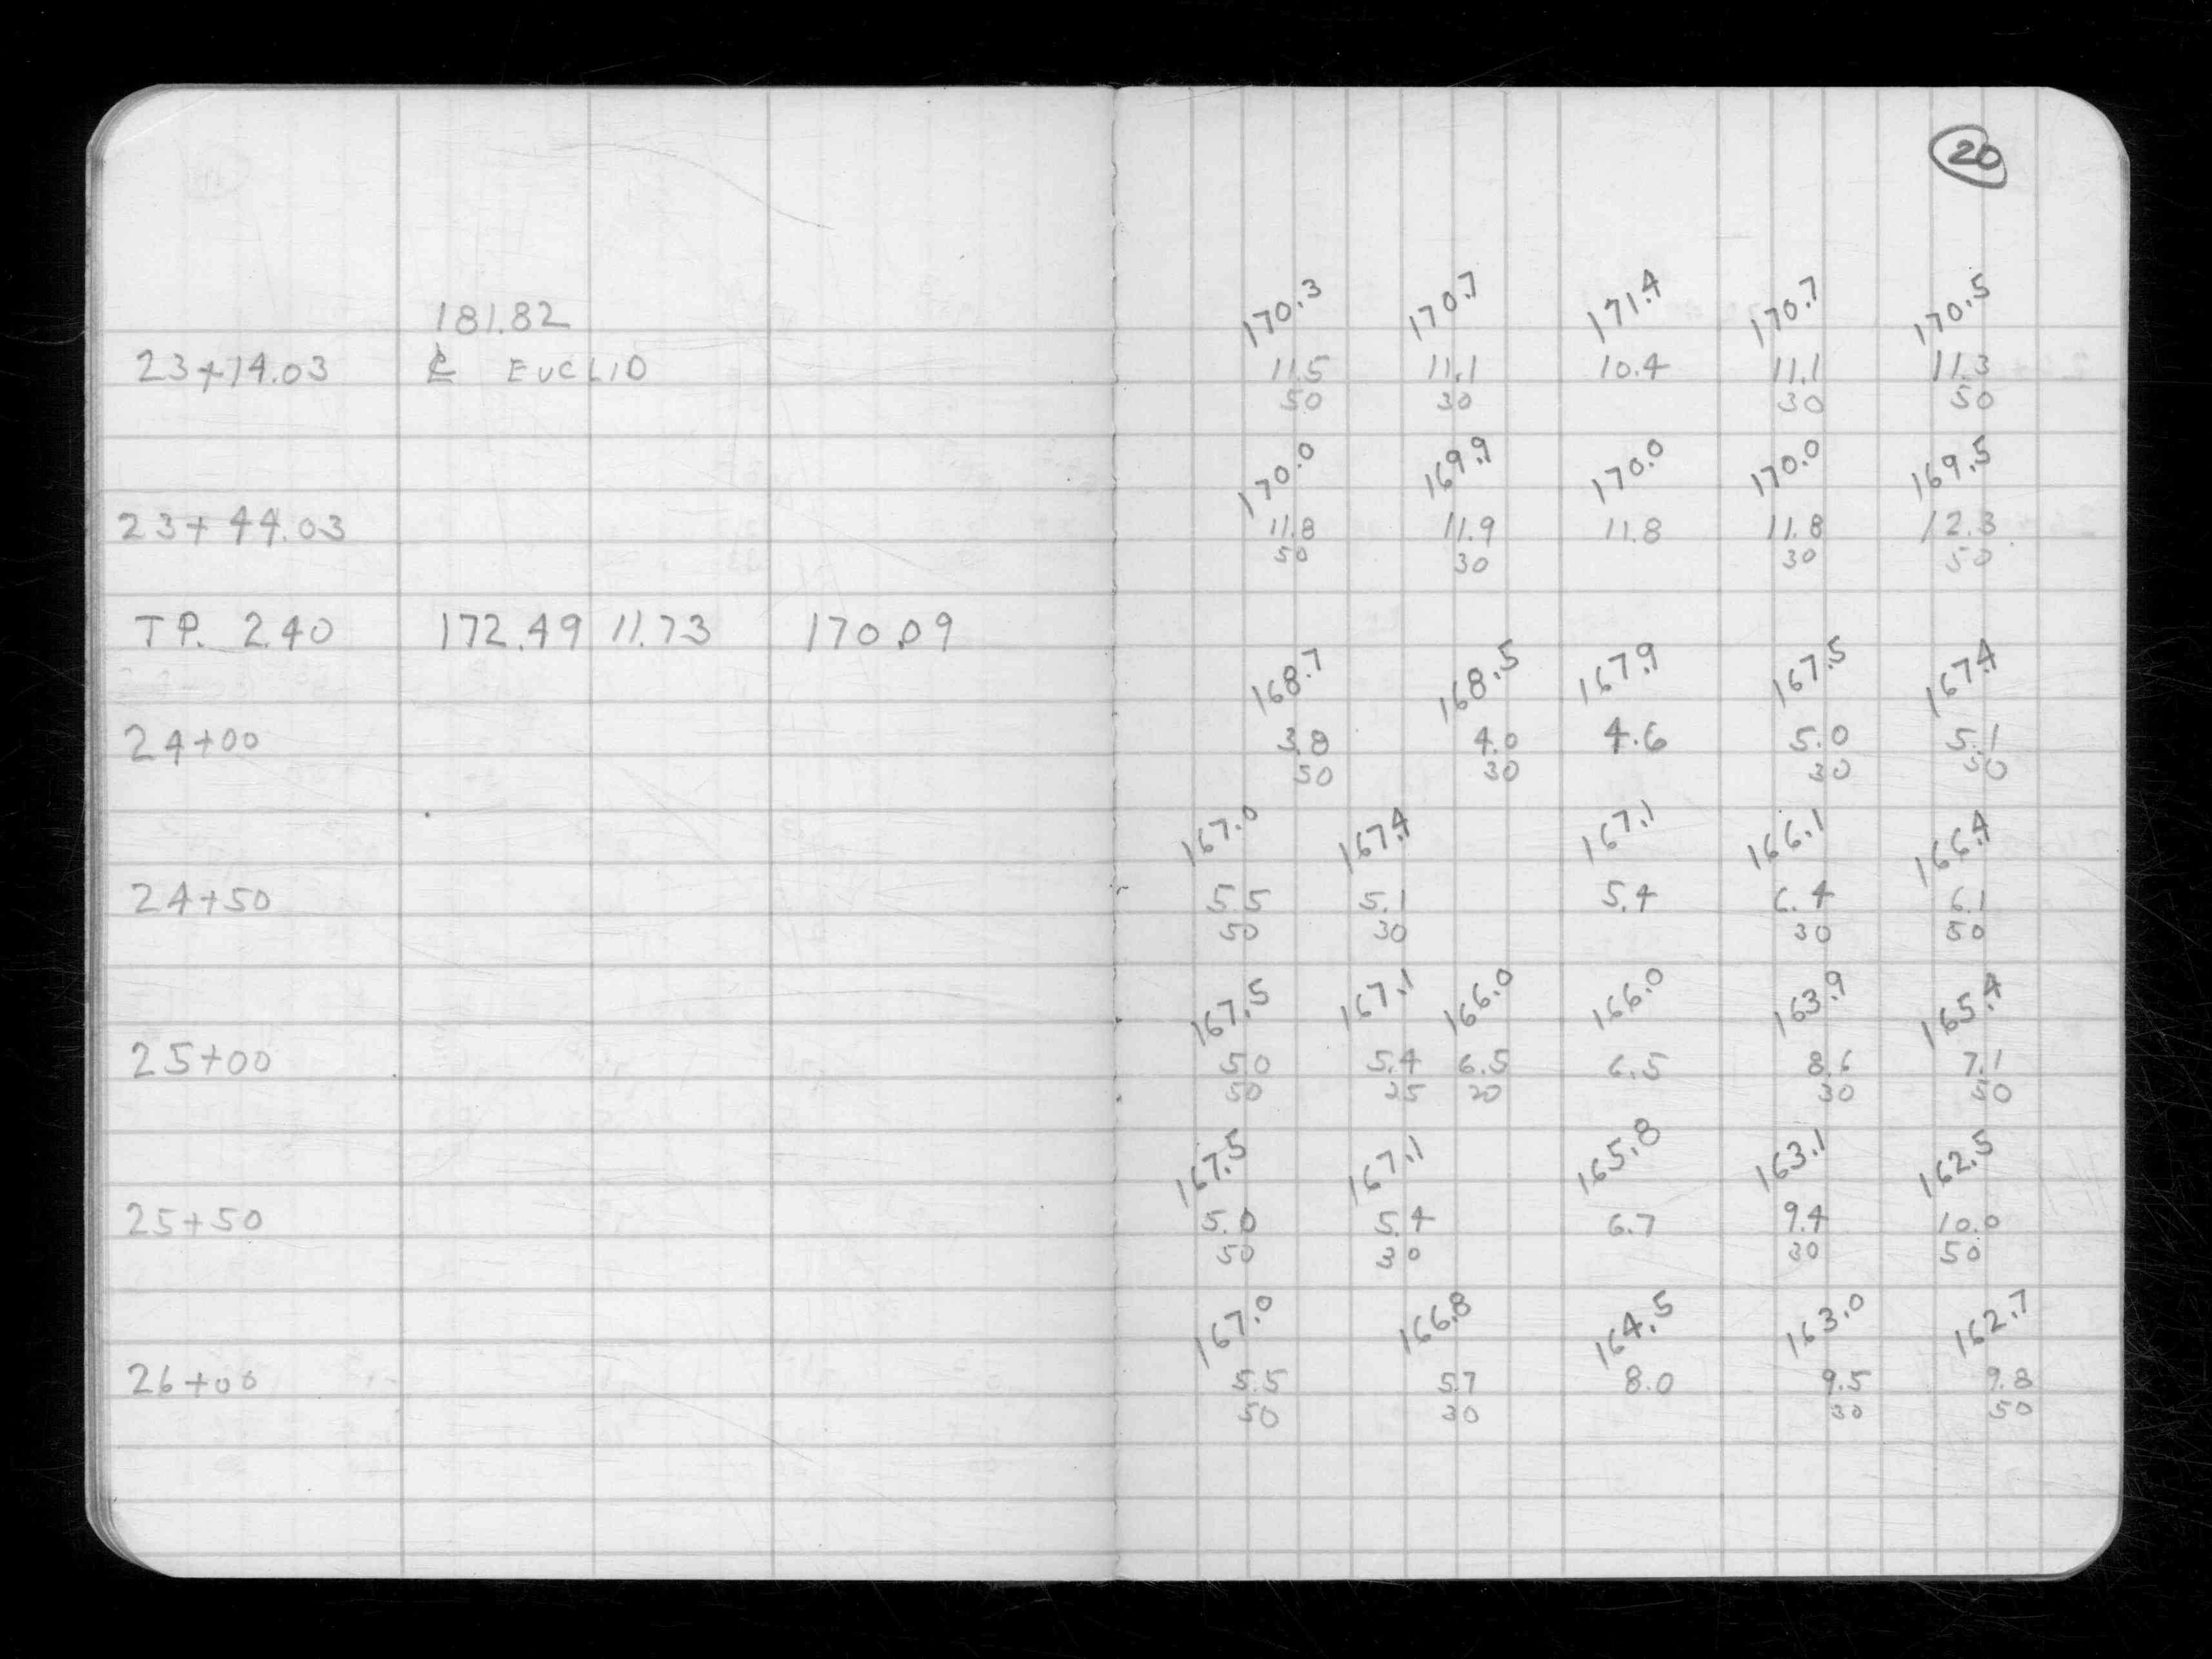 20
181.82 170.3 170.7 171.4 170.7 170.5
23+14.03 ℄ EUCLID 11.5 11.1 10.4 11.1 11.3
50 30 30 50
170.0 169.9 170.0 170.0 169.5
23+44.03 11.8 11.9 11.8 11.8 12.3
50 30 30 50
TP. 2.40 172.49 11.73 170.09
168.7 168.5 167.9 167.5 167.4
24+00 3.8 4.0 4.6 5.0 5.1
50 30 30 50
167.0 167.4 167.1 166.1 166.4
24+50 5.5 5.1 5.4 6.4 6.1
50 30 30 50
167.5 167.1 166.0 166.0 163.9 165.4
25+00 5.0 5.4 6.5 6.5 8.6 7.1
50 25 20 30 50
167.5 167.1 165.8 163.1 162.5
25+50 5.0 5.4 6.7 9.4 10.0
50 30 30 50
167.0 166.8 164.5 163.0 162.7
26+00 5.5 5.7 8.0 9.5 9.8
50 30 30 50